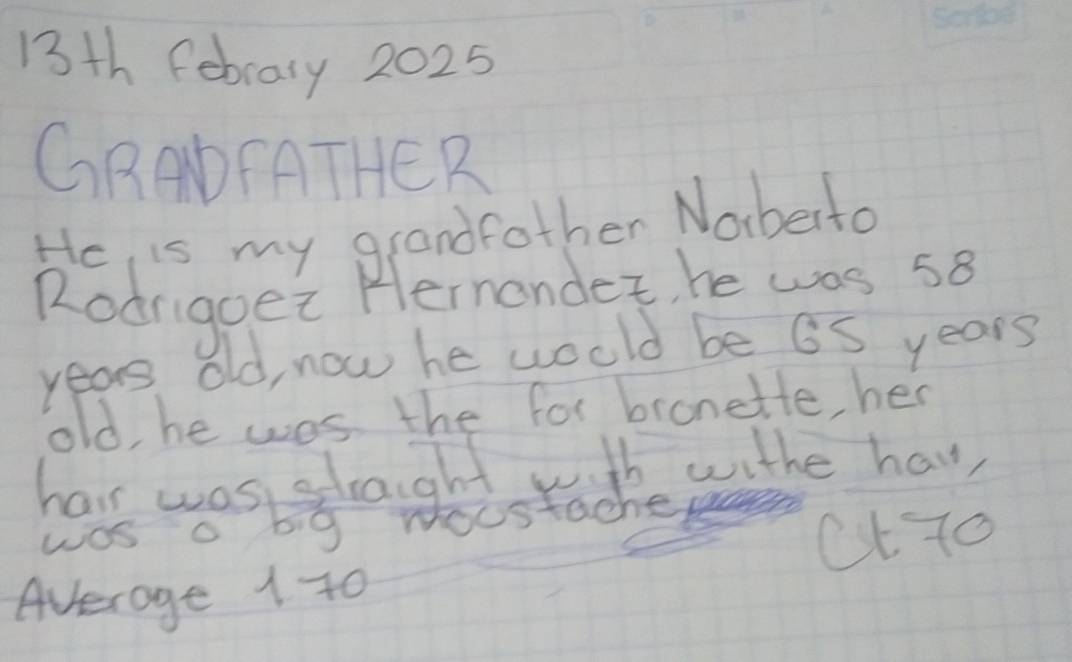 13th Febrary 2025
GRANDFATHER
He, is my grandfather Norberto
Rodriguez Hernandez, he was 58
years old, now he wocld be 65 years
old, he was the for bronette, her
hair was, straight with withe hair,
was a big moustache
Ct 70
Average 1.70